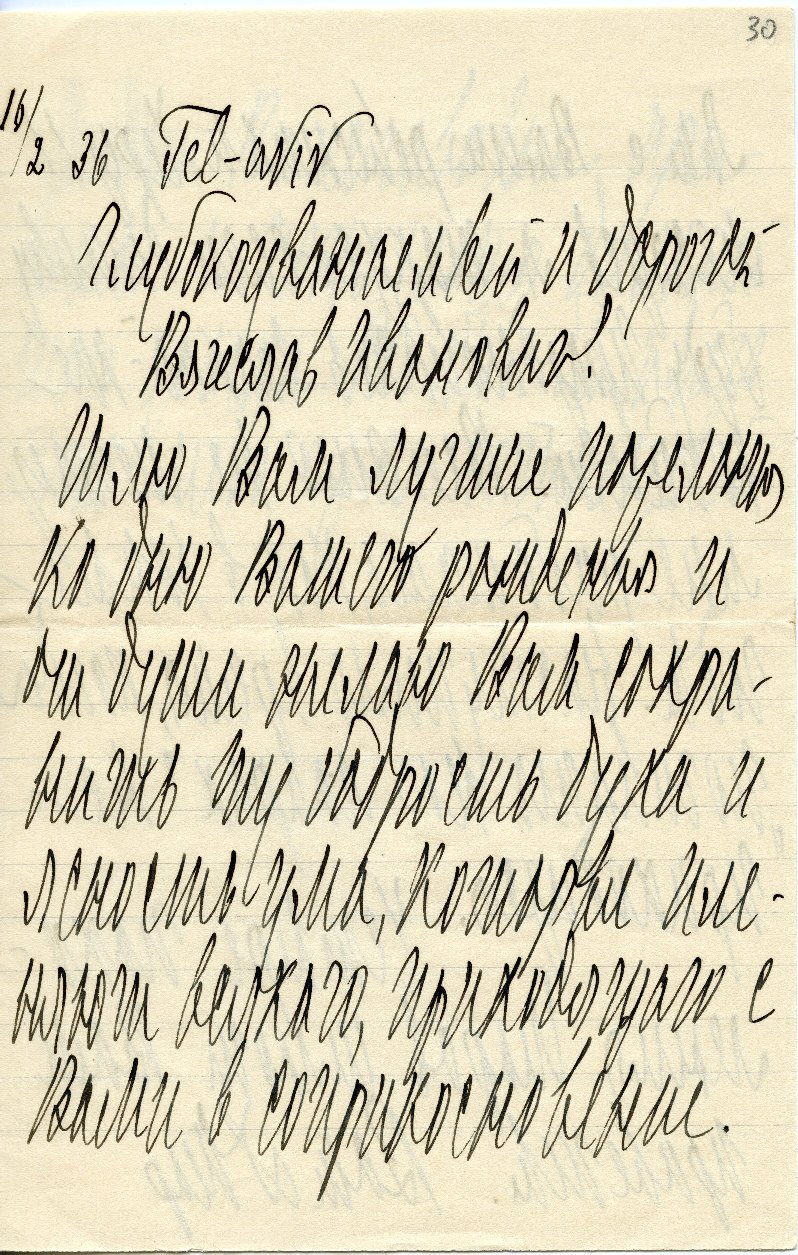 30
16/2 36 Tel-aviv
Глубокоуважаемый и дорогой
Вячеслав Иванович!
Шлю Вам лучшие пожеланья
ко дню Вашего рожденья и
от души желаю Вам сохра-
нить ту бодрость духа и
ясность ума, которые пле-
няют всякого, приходящего с
Вами в соприкосновение.